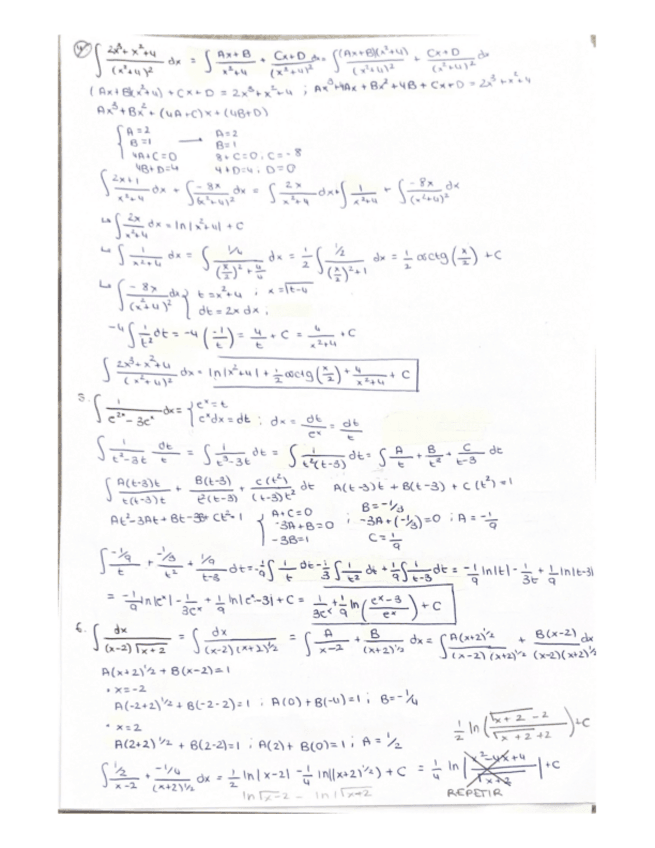 4) ∫ (2x³+x²+4)/(x²+4)² dx = ∫ (Ax+B)/(x²+4) + (Cx+D)/(x²+4)² dx = ∫ (Ax+B)(x²+4)/(x²+4)² + (Cx+D)/(x²+4)² dx
(Ax+B)(x²+4) + Cx+D = 2x³+x²+4 ; Ax³+4Ax+Bx²+4B+Cx+D = 2x³+x²+4
Ax³+Bx²+(4A+C)x+(4B+D)
{ A=2 → A=2
B=1 B=1
4A+C=0 8+C=0, C=-8
4B+D=4 4+D=4, D=0
∫ (2x+1)/(x²+4) dx + ∫ -8x/(x²+4)² dx = ∫ 2x/(x²+4) dx + ∫ 1/(x²+4) + ∫ -8x/(x²+4)² dx
↳ ∫ 2x/(x²+4) dx = ln|x²+4| + C
↳ ∫ 1/(x²+4) dx = ∫ (1/4)/((x/2)²+4/4) dx = 1/2 ∫ (1/2)/((x/2)²+1) dx = 1/2 arctg(x/2) + C
↳ ∫ -8x/(x²+4)² dx { t=x²+4 ; x=√t-4
dt=2x dx ;
-4 ∫ 1/t² dt = -4(-1/t) = 4/t + C = 4/(x²+4) + C
∫ (2x³+x²+4)/(x²+4)² dx = ln|x²+4| + 1/2 arctg(x/2) + 4/(x²+4) + C
5. ∫ 1/(e²ˣ-3eˣ) dx = { eˣ=t
eˣdx=dt ; dx = dt/eˣ = dt/t
∫ 1/(t²-3t) dt/t = ∫ 1/(t³-3t²) dt = ∫ 1/(t²(t-3)) dt = ∫ A/t + B/t² + C/(t-3) dt
∫ A(t-3)t/(t(t-3)t) + B(t-3)/(t²(t-3)) + C(t²)/((t-3)t²) dt A(t-3)t + B(t-3) + C(t²) = 1
At²-3At+Bt-3B+Ct²=1 { A+C=0 ; B=-1/3
-3A+B=0 ; -3A+(-1/3)=0 ; A=-1/9
-3B=1 C=1/9
∫ (-1/9)/t + (-1/3)/t² + (1/9)/(t-3) dt = -1/9 ∫ 1/t dt - 1/3 ∫ 1/t² dt + 1/9 ∫ 1/(t-3) dt = -1/9 ln|t| - 1/3t + 1/9 ln|t-3|
= -1/9 ln|eˣ| - 1/3eˣ + 1/9 ln|eˣ-3| + C = 1/3eˣ + 1/9 ln((eˣ-3)/eˣ) + C
6. ∫ dx/((x-2)√x+2) = ∫ dx/((x-2)(x+2)^1/2) = ∫ A/(x-2) + B/(x+2)^1/2 dx = ∫ A(x+2)^1/2/((x-2)(x+2)^1/2) + B(x-2)/((x-2)(x+2)^1/2) dx
A(x+2)^1/2 + B(x-2) = 1
• x=-2
A(-2+2)^1/2 + B(-2-2)=1 ; A(0)+B(-4)=1 ; B=-1/4
• x=2
A(2+2)^1/2 + B(2-2)=1 ; A(2)+B(0)=1 ; A=1/2
1/2 ln((√x+2 -2)/(√x+2 +2)) + C
∫ (1/2)/(x-2) + (-1/4)/(x+2)^1/2 dx = 1/2 ln|x-2| - 1/4 ln|(x+2)^1/2) + C = 1/4 ln|(x²-4x+4)/√x+2| + C
ln√x-2 - ln√x+2 REPETIR